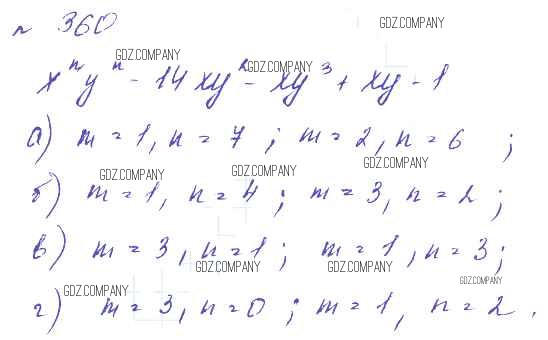 № 360
GDZ.COMPANY
GDZ.COMPANY GDZ.COMPANY
xⁿyⁿ - 14xy² - xy³ + xy - 1
а) m = 1, n = 7 ; m = 2, n = 6 ;
GDZ.COMPANY GDZ.COMPANY GDZ.COMPANY
б) m = 1, n = 4 ; m = 3, n = 2 ;
в) m = 3, n = 1 ; m = 1, n = 3 ;
GDZ.COMPANY GDZ.COMPANY GDZ.COMPANY
GDZ.COMPANY
г) m = 3, n = 0 ; m = 1, n = 2 .